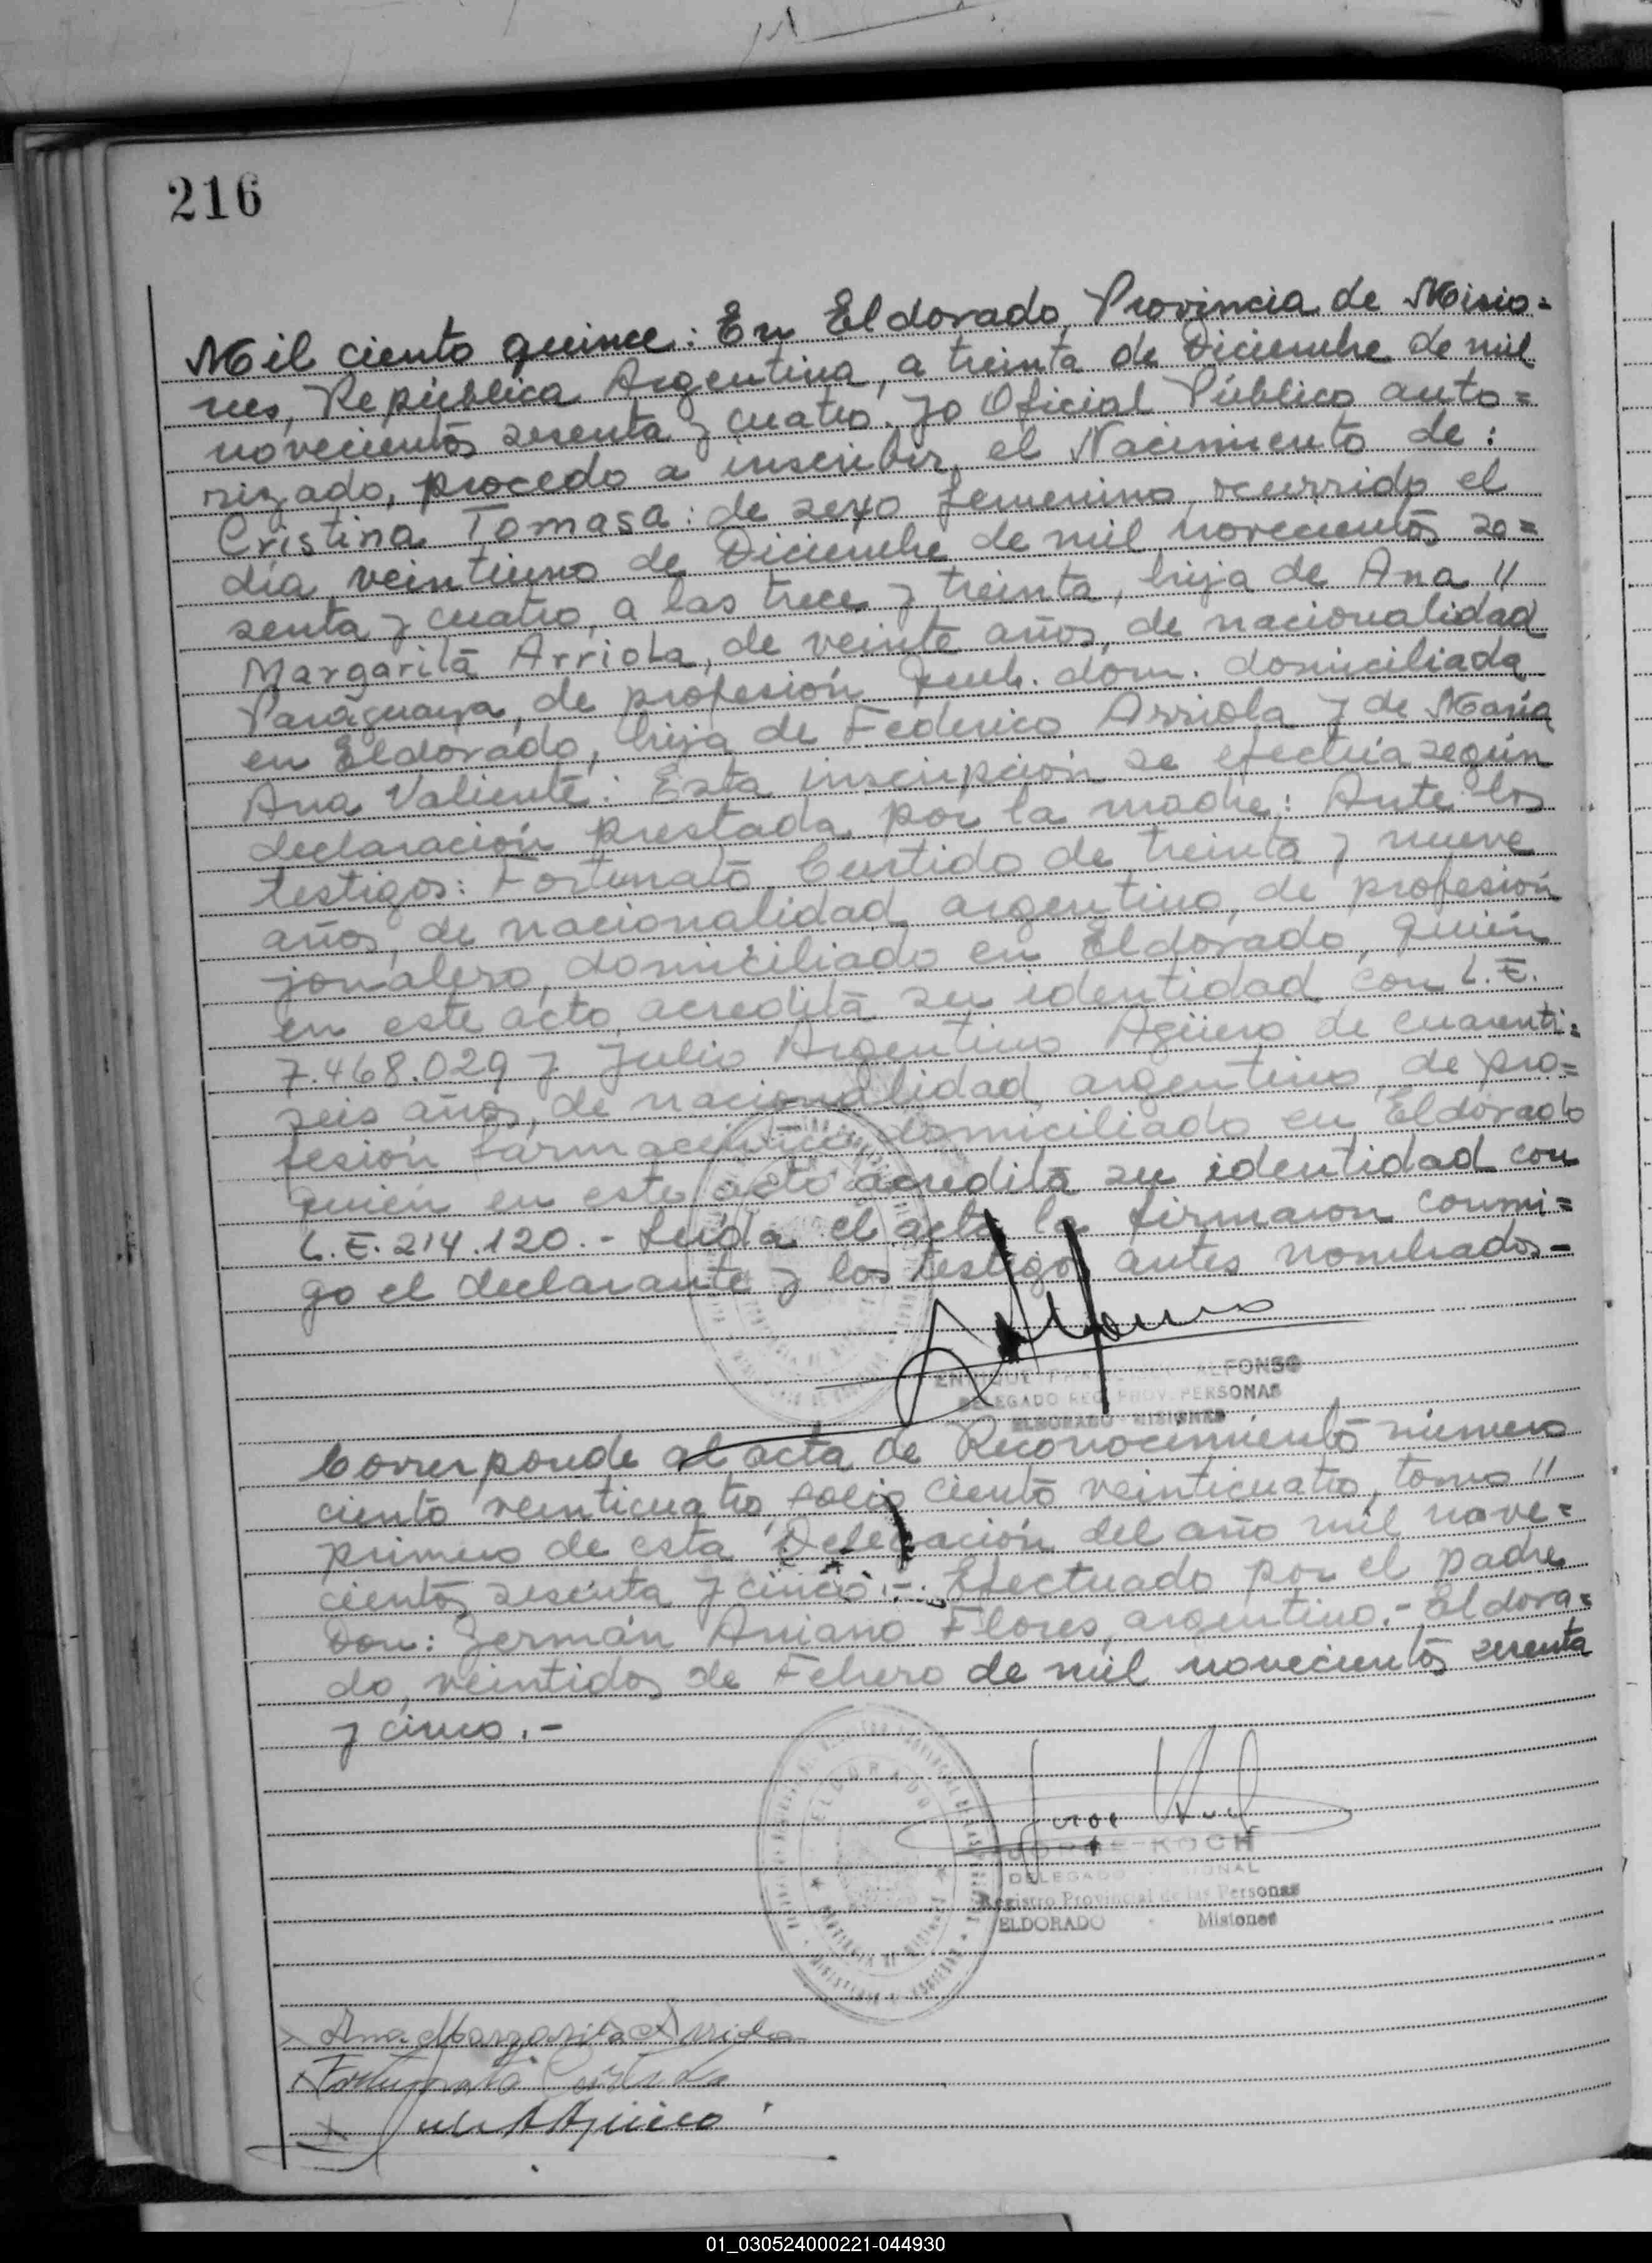 216
Mil ciento quince: En Eldorado, Provincia de Misio=
nes, República Argentina, a treinta de Diciembre de mil
novecientos sesenta y cuatro. Yo Oficial Público auto=
rizado, procedo a inscribir, el Nacimiento de:
Cristina Tomasa: de sexo femenino, ocurrido el
día veintiuno de Diciembre de mil novecientos se=
senta y cuatro, a las trece y treinta, hija de Ana "
Margarita Arriola, de veinte años, de nacionalidad
Paraguaya, de profesión dom. domiciliada
en Eldorado, hija de Federico Arriola y de María
Ana Valiente: Esta inscripción se efectúa según
declaración prestada por la madre: Ante los
testigos: Fortunato Curtido de treinta y nueve
años, de nacionalidad argentino, de profesión
jornalero, domiciliado en Eldorado, quién
en este acto acredita su identidad con L.E.
7.468.029 y Julio Argentino Agüero de cuarenti=
seis años, de nacionalidad argentino, de pro=
fesión farmacéutico, domiciliado en Eldorado
quién en este acto acredita su identidad con
L.E. 214.120.- Leída el acta la firmaron conmi=
go el declarante y los testigos antes nombrados-
ENRIQUE ALFONSO
DELEGADO REG. PROV. PERSONAS
ELDORADO MISIONES
Corresponde al acta de Reconocimiento número
ciento veinticuatro, folio ciento veinticuatro, tomo "
primero de esta Delegación del año mil nove=
cientos sesenta y cinco.-. Efectuado por el padre
Don: Germán Aniano Flores, argentino.- Eldora=
do, veintidos de Febrero de mil novecientos sesenta
y cinco.-
ELDORADO
PROVINCIA DE MISIONES
JORGE KOCH
DELEGADO
Registro Provincial de las Personas
ELDORADO - Misiones
Ana Margarita Arriola
Fortunato Curtido
Julio A Agüero
01_030524000221-044930